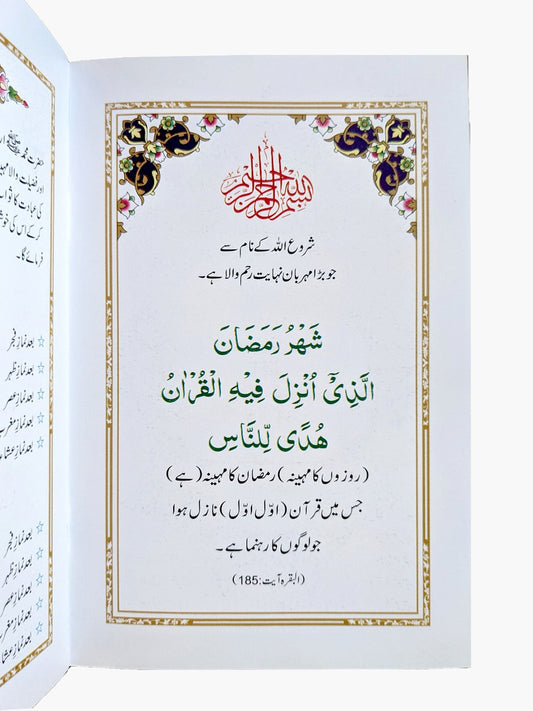 بسم الله الرحمن الرحيم
شروع اللہ کے نام سے
جو بڑا مہربان نہایت رحم والا ہے۔
شَهْرُ رَمَضَانَ
الَّذِیْٓ اُنْزِلَ فِیْهِ الْقُرْاٰنُ
هُدًی لِّلنَّاسِ
(روزوں کا مہینہ) رمضان کا مہینہ (ہے)
جس میں قرآن (اوّل اوّل) نازل ہوا
جو لوگوں کا رہنما ہے۔
(البقرہ آیت:185)
حضرت محمد ﷺ
اور فضیلت والا مہینہ
کی عبادت کا ثواب
کر کے اس کی
فرمائے گا۔
☆ بعد نماز فجر
☆ بعد نماز ظہر
☆ بعد نماز عصر
☆ بعد نماز مغرب
☆ بعد نماز عشاء
☆ بعد نماز فجر
☆ بعد نماز ظہر
☆ بعد نماز عصر
☆ بعد نماز مغرب
☆ بعد نماز عشا